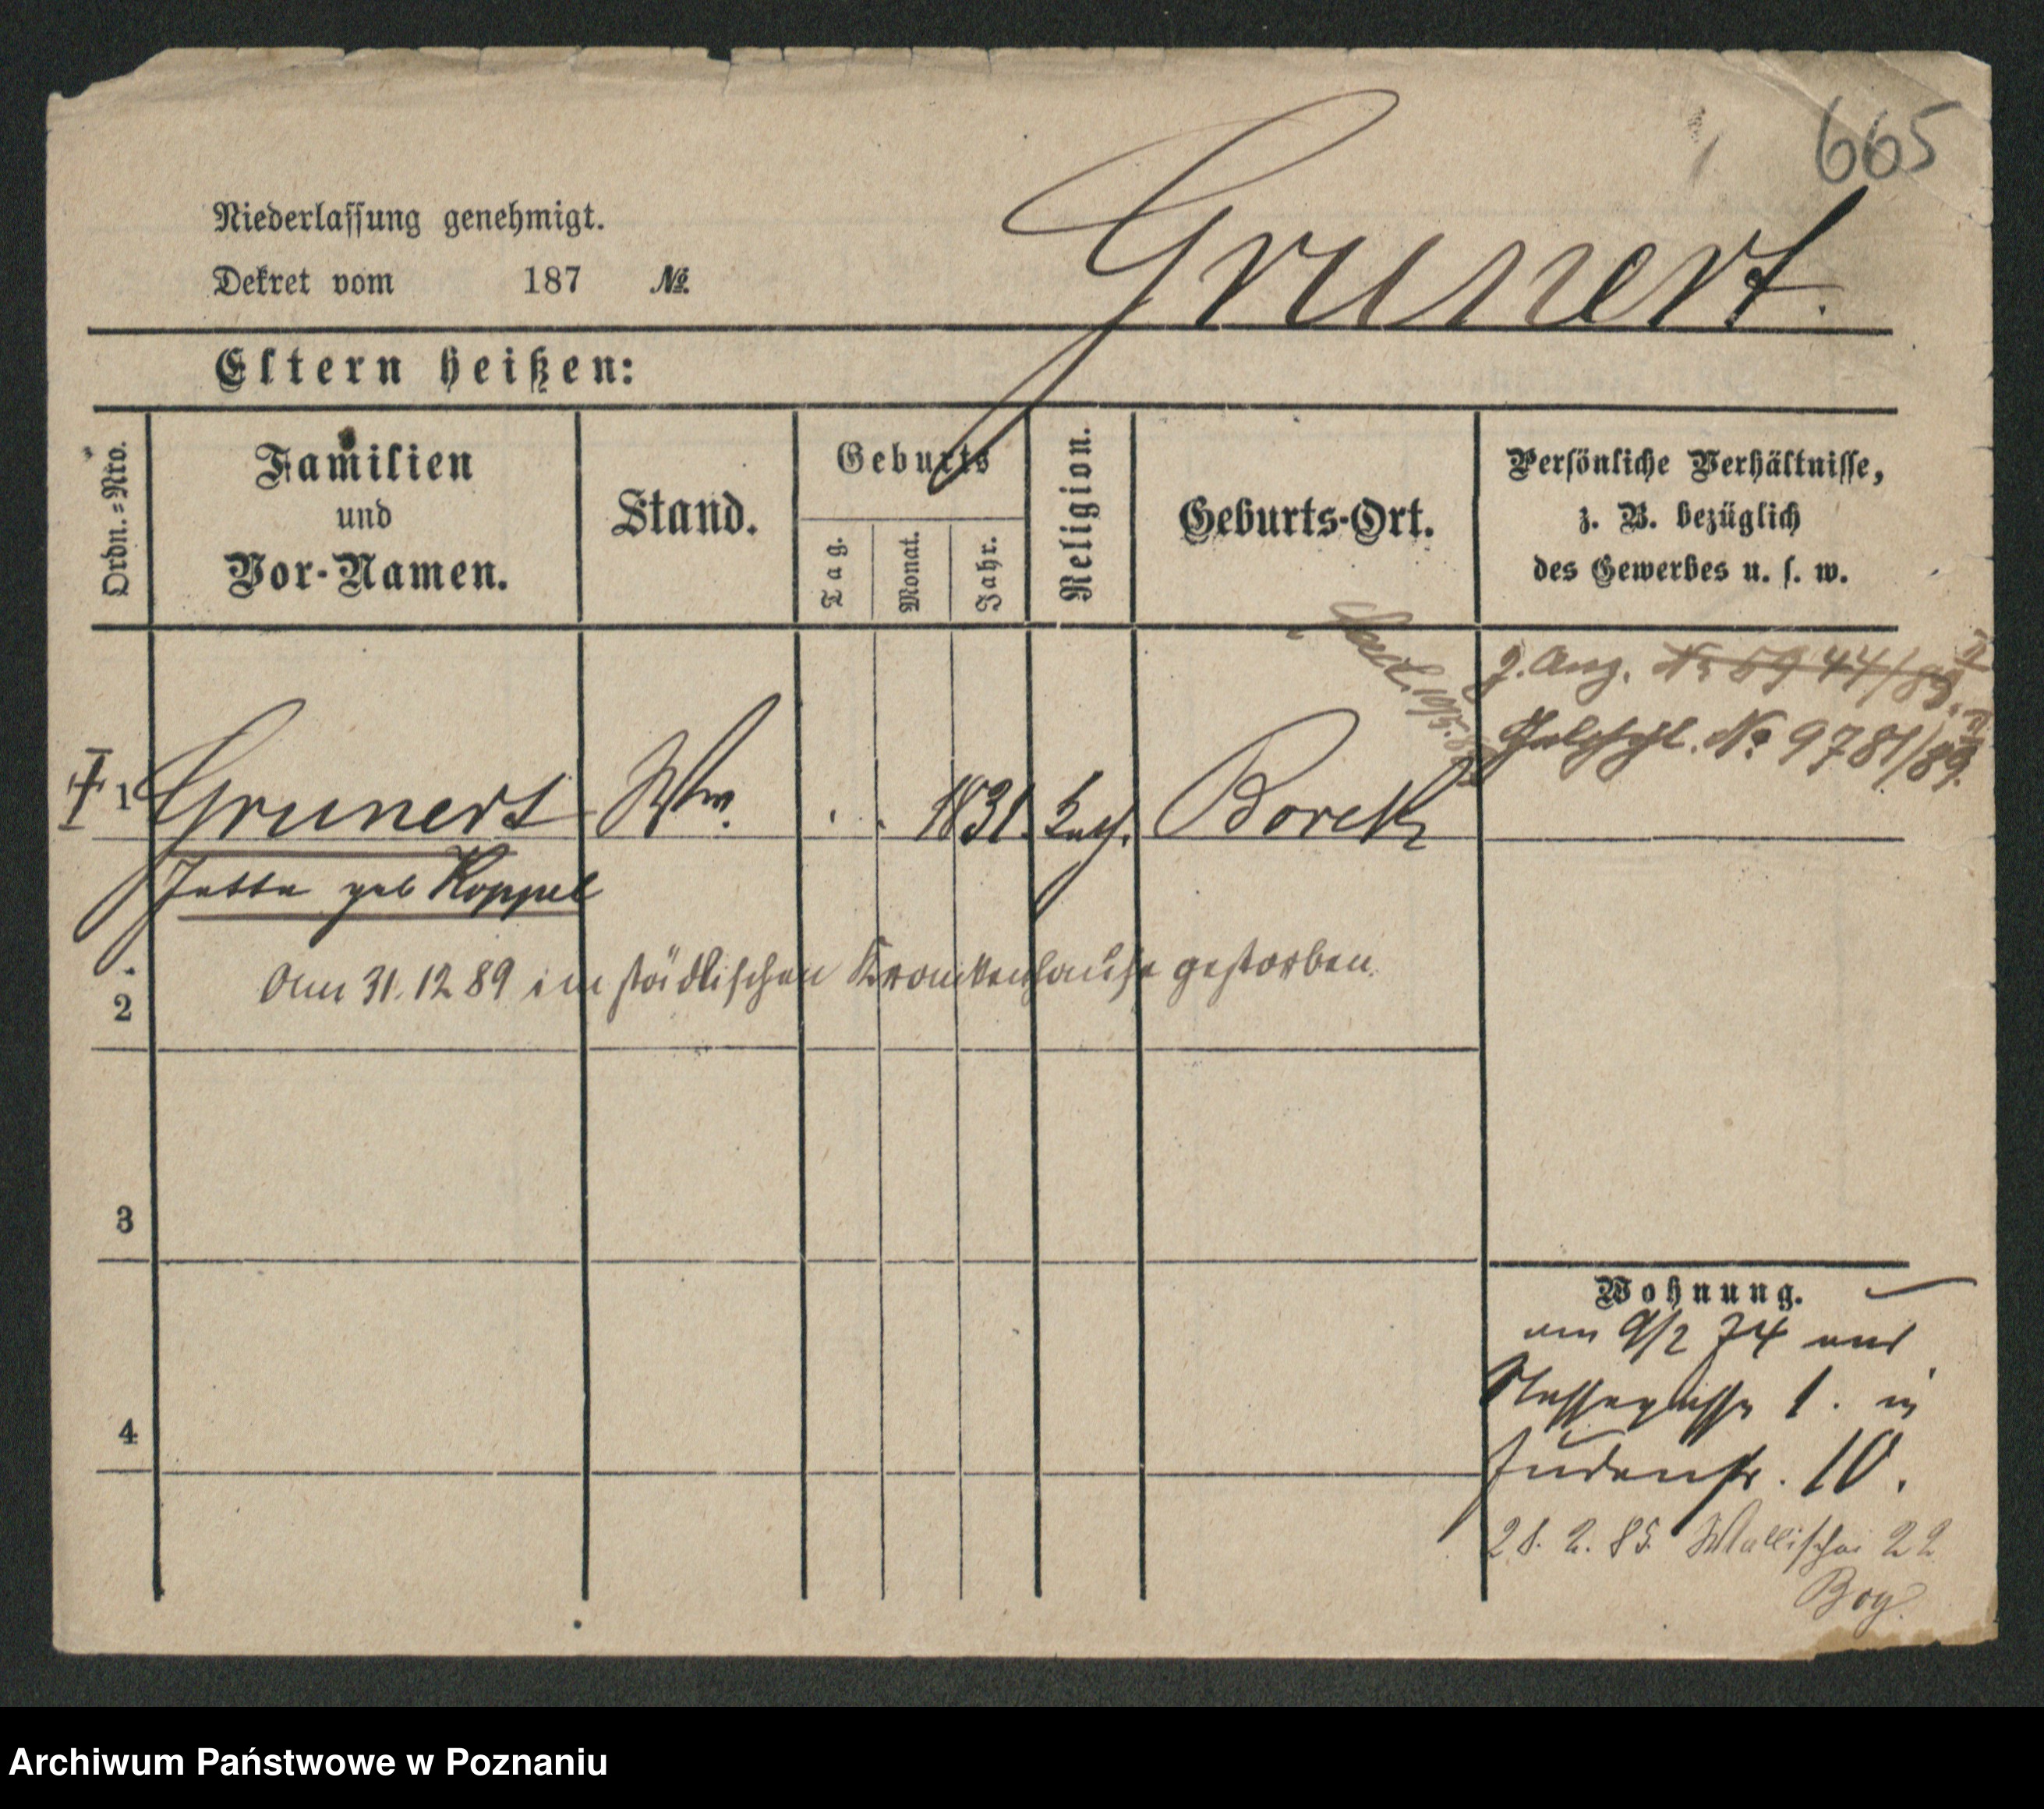 665
Niederlassung genehmigt.
Dekret vom 187 №
Grunert.
Eltern heißen:
Ordn.=Nro.
Familien
und
Vor-Namen.
Stand.
Geburts
Tag.
Monat.
Jahr.
Religion.
Geburts-Ort.
Persönliche Verhältnisse,
z. B. bezüglich
des Gewerbes u. s. w.
№ 5944/89.
№ 9781/89.
1 Grunert Ww. 1831. Borek
Jette geb Koppel
2 Am 31.12 89 im städtischen Krankenhause gestorben.
3
4
Wohnung.
am 9/2 74 aus
1. in
Judenstr. 10.
28. 2. 85. Wallischei 22
Archiwum Państwowe w Poznaniu